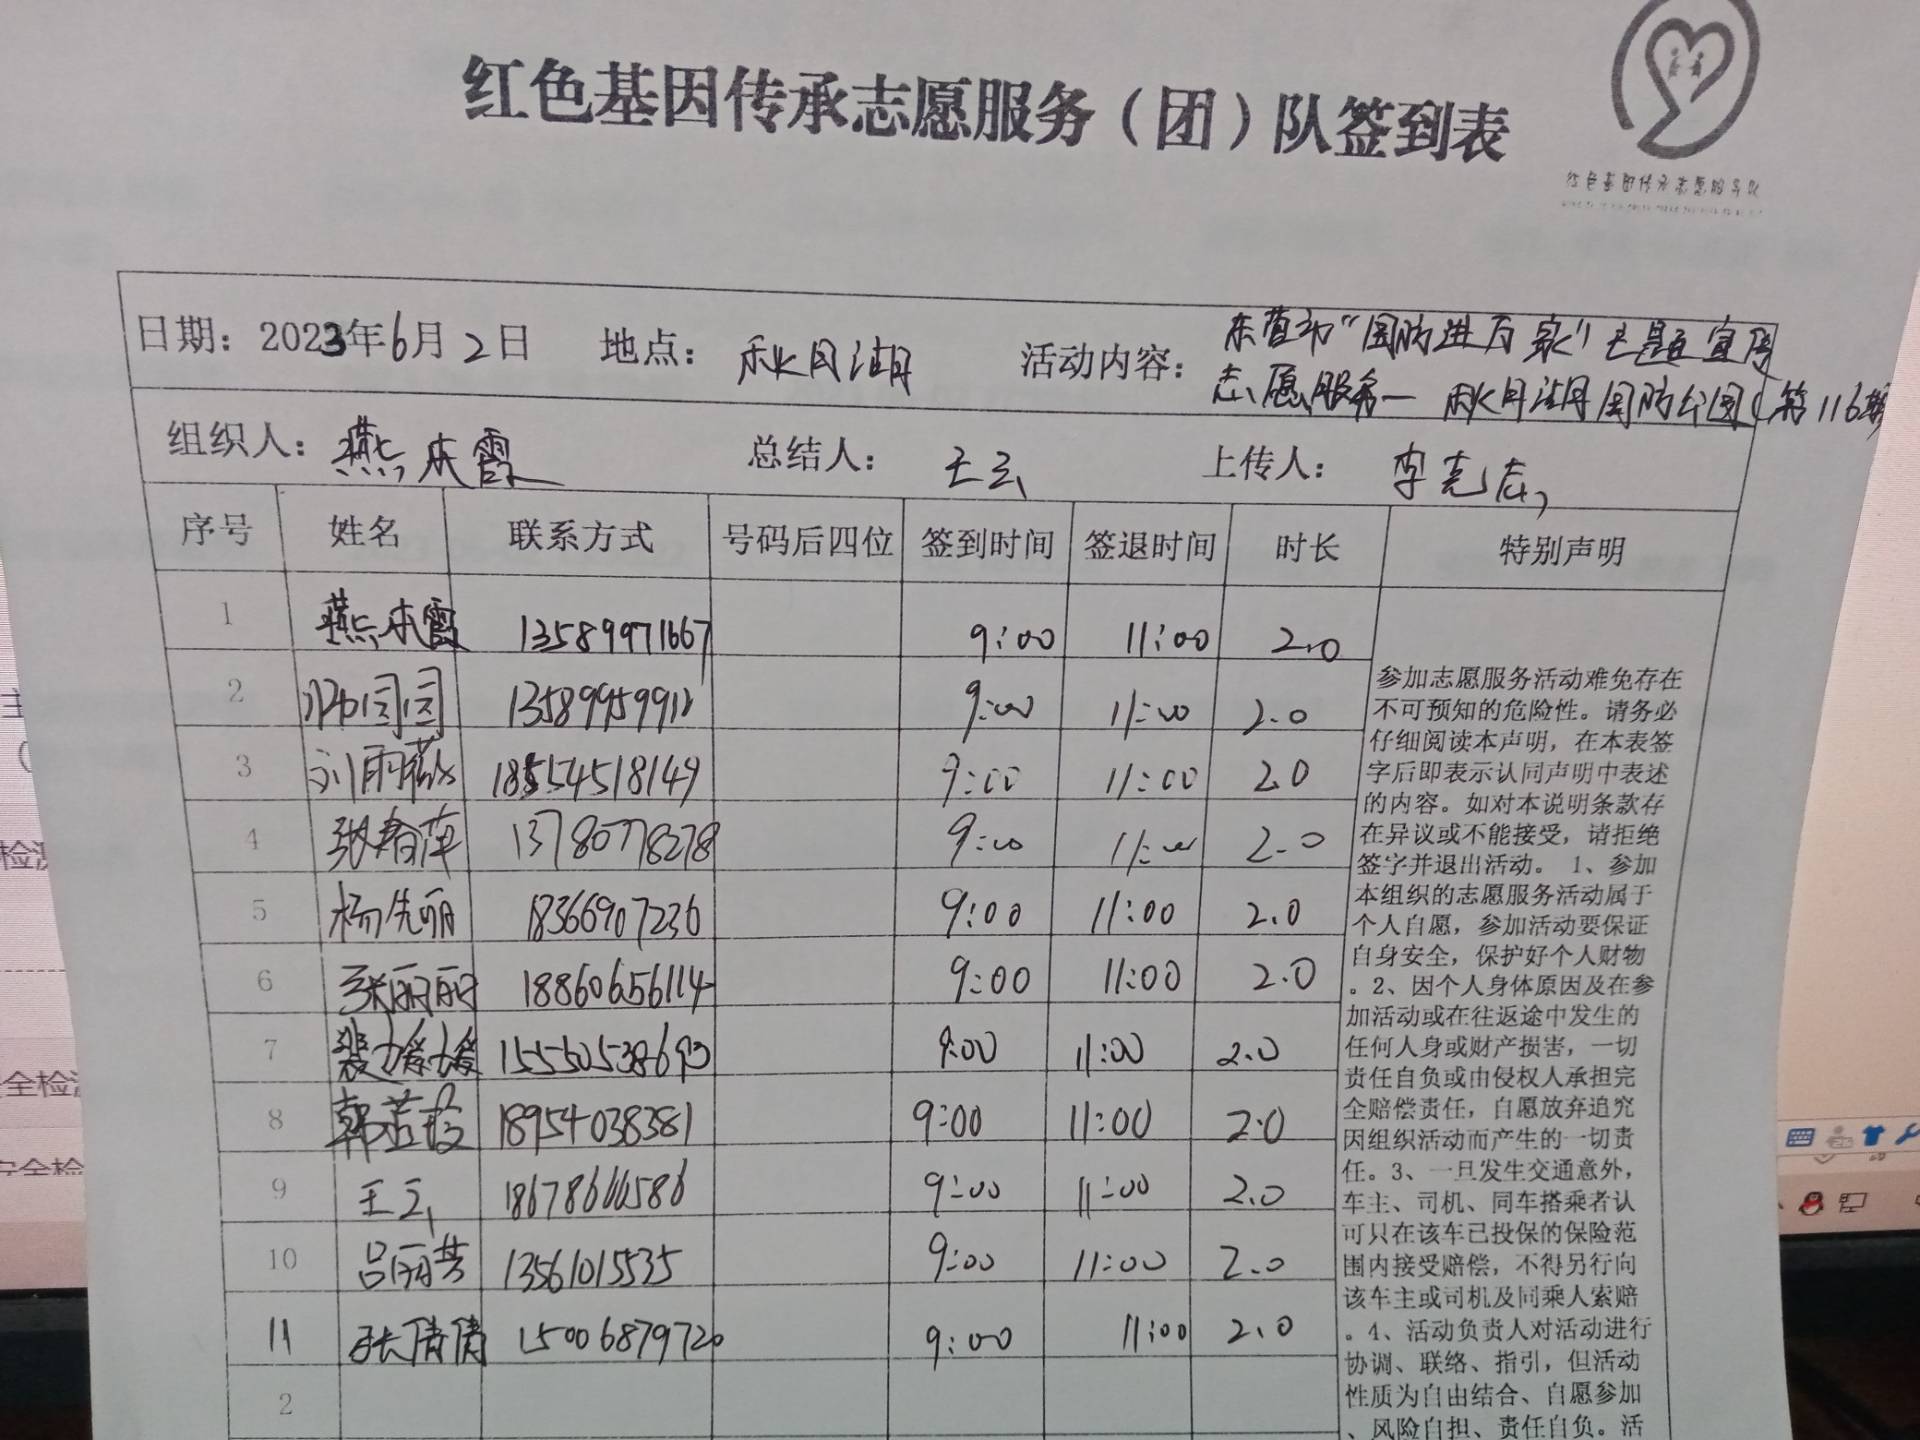 红色基因传承志愿服务（团）队签到表
红色基因传承志愿服务队
日期：2023年6月2日 地点：秋月湖 活动内容：东营市“国防进万家”主题宣传
志愿服务—秋月湖国防公园(第116期
组织人：燕本霞 总结人：王云 上传人：李克志
序号 姓名 联系方式 号码后四位 签到时间 签退时间 时长 特别声明
1 燕本霞 13589971667 9:00 11:00 2.0
2 13589959912 9:00 11:00 2.0
3 刘雨薇 18554518149 9:00 11:00 2.0
4 张春萍 13780778278 9:00 11:00 2.0
5 杨先丽 18366907236 9:00 11:00 2.0
6 张丽丽 18860656114 9:00 11:00 2.0
7 裴媛媛 15550538693 9:00 11:00 2.0
8 韩 18954038381 9:00 11:00 2.0
9 王云 9:00 11:00 2.0
10 吕丽芸 13561015535 9:00 11:00 2.0
11 张倩倩 15006879720 9:00 11:00 2.0
2
参加志愿服务活动难免存在
不可预知的危险性。请务必
仔细阅读本声明，在本表签
字后即表示认同声明中表述
的内容。如对本说明条款存
在异议或不能接受，请拒绝
签字并退出活动。 1、参加
本组织的志愿服务活动属于
个人自愿，参加活动要保证
自身安全，保护好个人财物
。2、因个人身体原因及在参
加活动或在往返途中发生的
任何人身或财产损害，一切
责任自负或由侵权人承担完
全赔偿责任，自愿放弃追究
因组织活动而产生的一切责
任。3、一旦发生交通意外，
车主、司机、同车搭乘者认
可只在该车已投保的保险范
围内接受赔偿，不得另行向
该车主或司机及同乘人索赔
。4、活动负责人对活动进行
协调、联络、指引，但活动
性质为自由结合、自愿参加
、风险自担、责任自负。活
检测
全检测
安全检